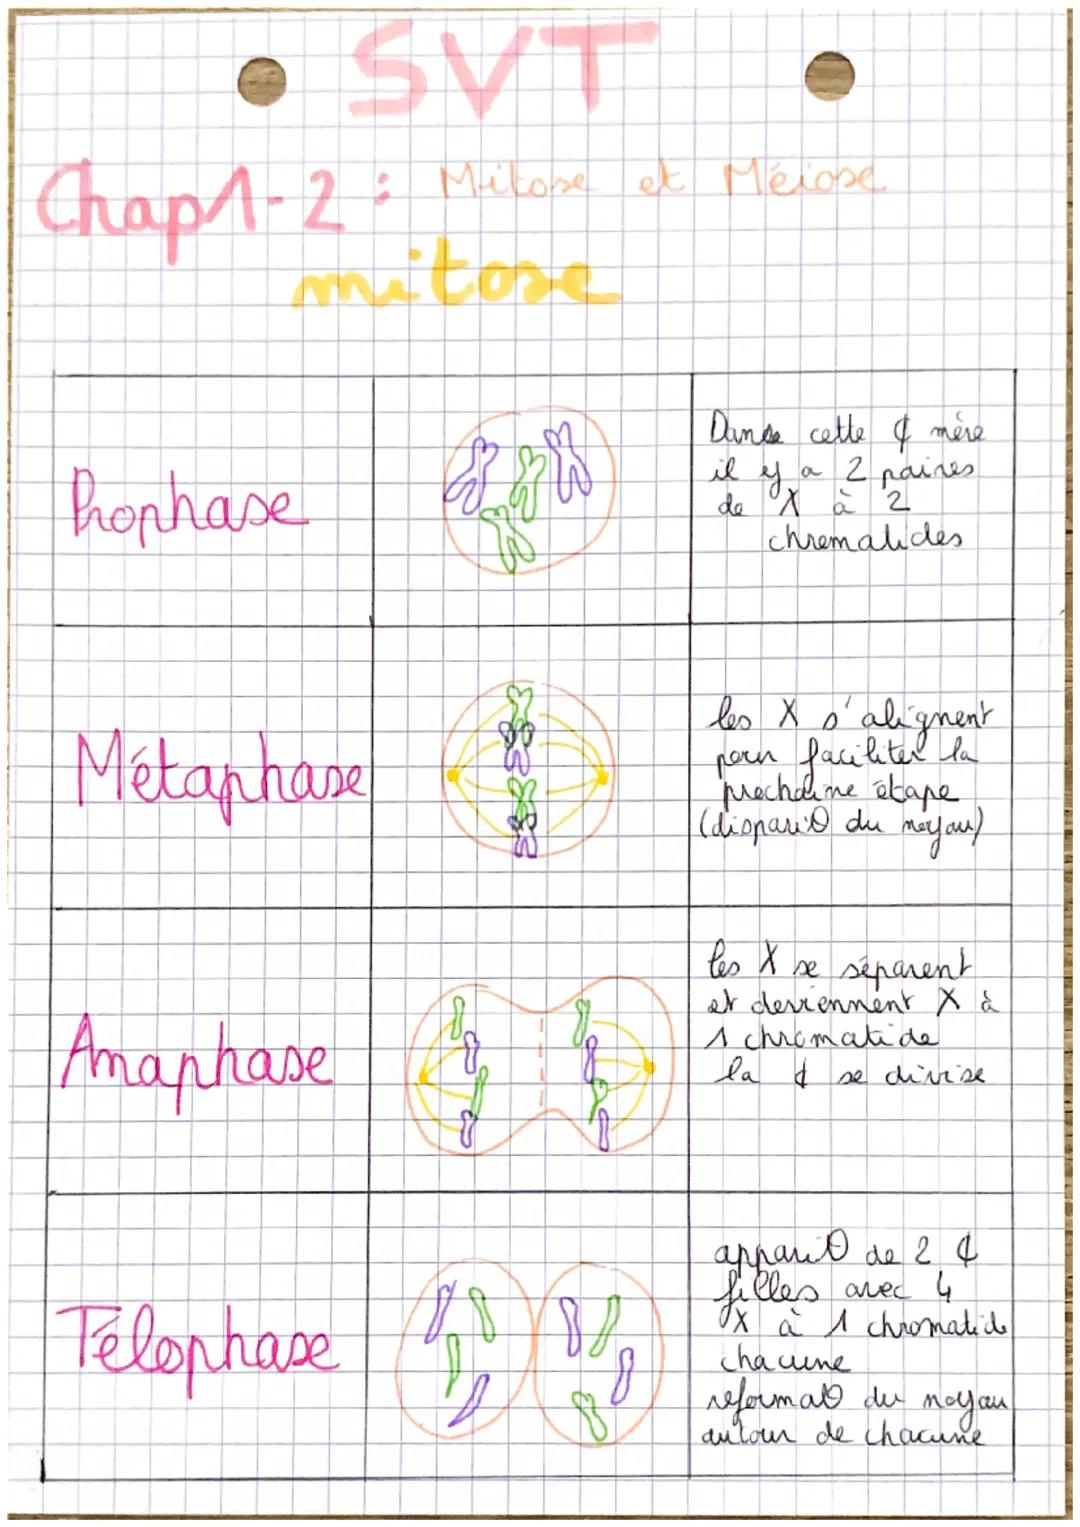 SVT
Chap1-2 : Mitose et Méiose
mitose
Prophase
Dans cette ₵ mère
il y a 2 paires
de X à 2
chromatides
Métaphase
les X s'alignent
pour faciliter la
prochaine étape
(dispariO du noyau)
Anaphase
les X se séparent
et deviennent X à
1 chromatide
la ₵ se divise
Télophase
appariO de 2 ₵
filles avec 4
X à 1 chromatide
chacune
reformaO du noyau
autour de chacune